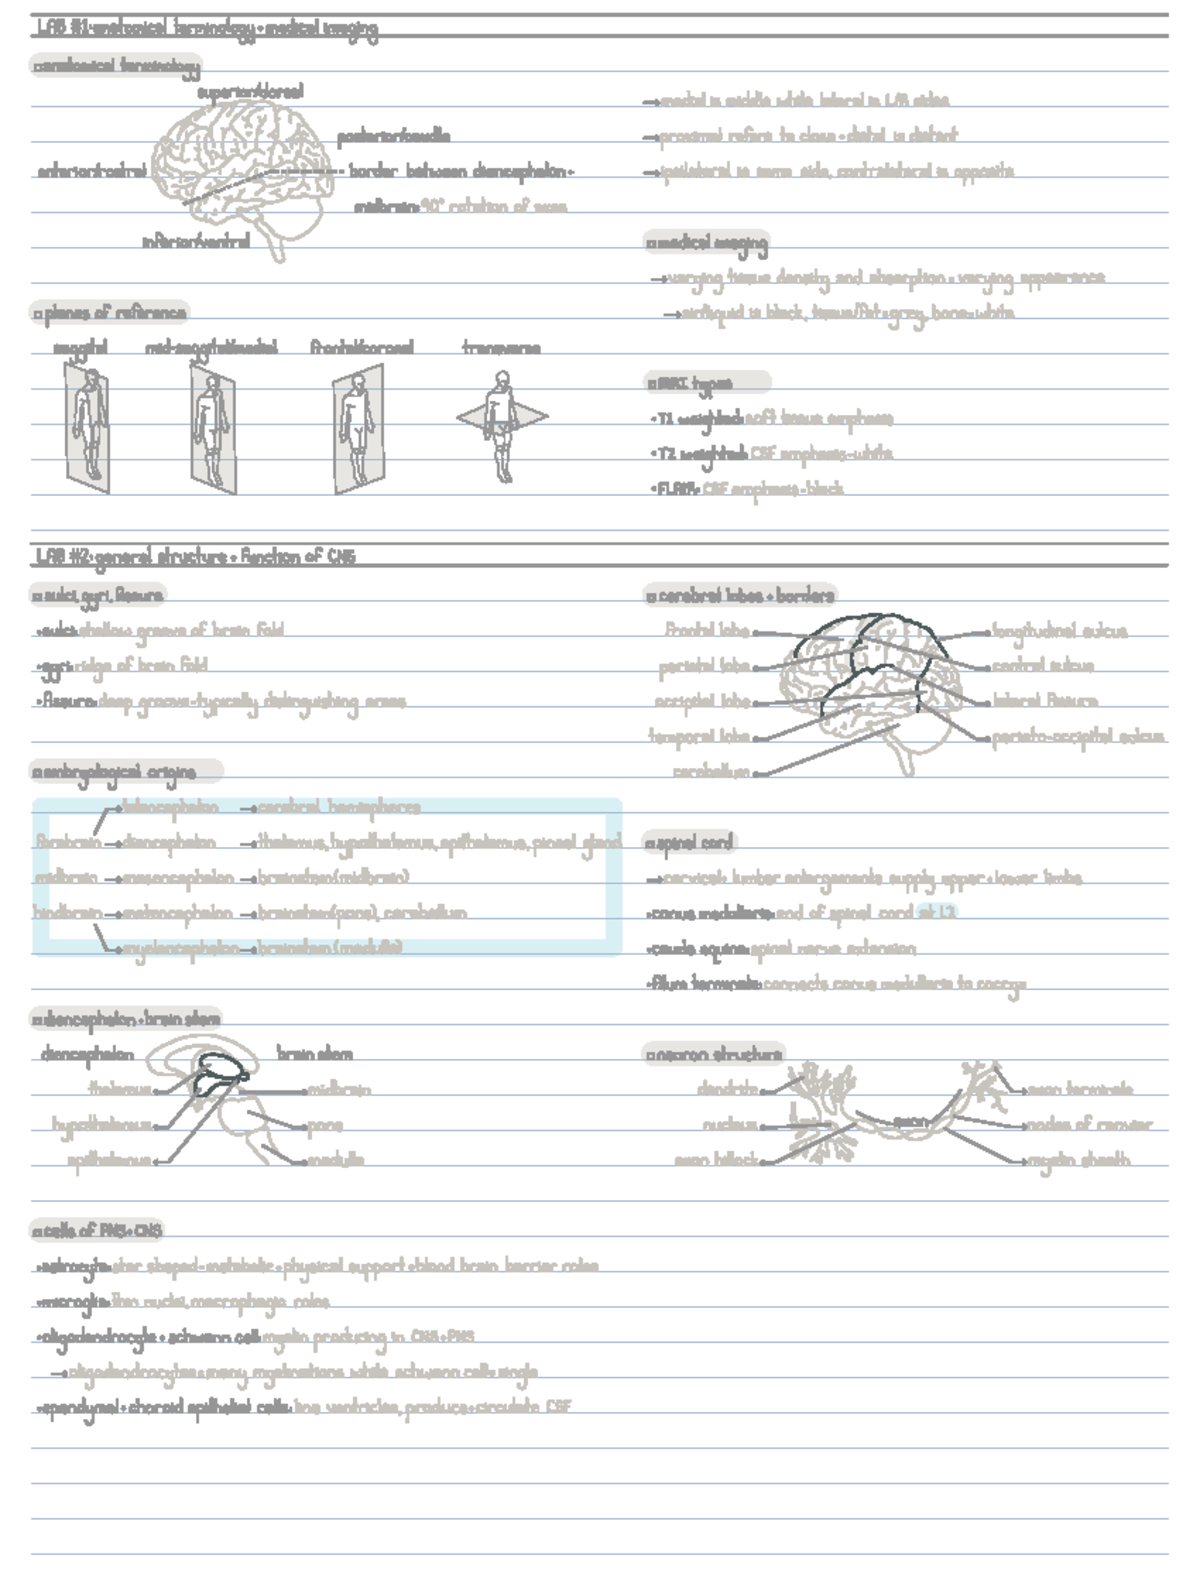 LAB #1: anatomical terminology + medical imaging
anatomical terminology
superior/dorsal
posterior/caudle
anterior/rostral
border between diencephalon +
midbrain: 90° rotation of axes
inferior/ventral
→ medial is middle while lateral is L/R sides
→ proximal refers to close + distal is distant
→ ipsilateral is same side, contralateral is opposite
medical imaging
→ varying tissue density and absorption = varying appearance
→ air/liquid is black, tissue/fat = grey, bone = white
planes of reference
sagittal
mid-sagittal/medial
frontal/coronal
transverse
MRI types
• T1 weighted: soft tissue emphasis
• T2 weighted: CSF emphasis - white
• FLAIR: CSF emphasis - black
LAB #2: general structure + function of CNS
sulci, gyri, fissure
• sulci: shallow groove of brain fold
• gyri: ridge of brain fold
• fissure: deep groove - typically distinguishing areas
cerebral lobes + borders
frontal lobe
parietal lobe
occipital lobe
temporal lobe
cerebellum
longitudinal sulcus
central sulcus
lateral fissure
parieto-occipital sulcus
embryological origins
telencephalon → cerebral hemispheres
forebrain → diencephalon → thalamus, hypothalamus, epithalamus, pineal gland
midbrain → mesencephalon → brainstem (midbrain)
hindbrain → metencephalon → brainstem (pons), cerebellum
myelencephalon → brainstem (medulla)
spinal cord
→ cervical + lumbar enlargements supply upper + lower limbs
• conus medullaris: end of spinal cord at L2
• cauda equina: spinal nerve extension
• filum terminale: connects conus medullaris to coccyx
diencephalon + brain stem
diencephalon
thalamus
hypothalamus
epithalamus
brain stem
midbrain
pons
medulla
neuron structure
dendrite
nucleus
axon hillock
axon
axon terminals
nodes of ranvier
myelin sheath
cells of PNS + CNS
• astrocyte: star shaped - metabolic + physical support + blood brain barrier roles
• microglia: thin nuclei, macrophagic roles
• oligodendrocyte + schwann cell: myelin producing in CNS + PNS
→ oligodendrocytes = many myelinations while schwann cell = single
• ependymal + choroid epithelial cells: line ventricles, produce + circulate CSF